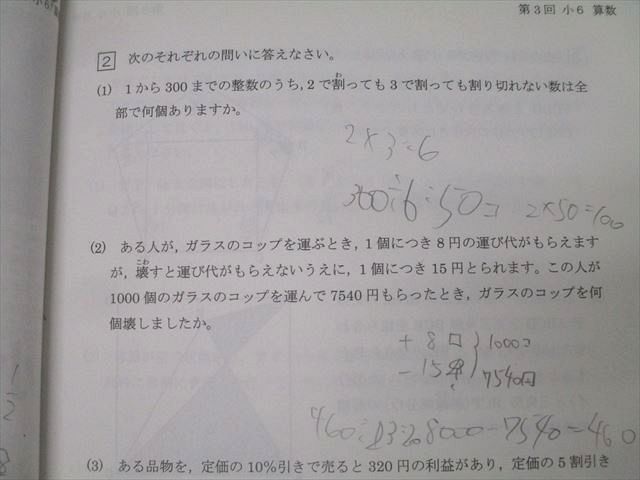 第3回 小6 算数
2 次のそれぞれの問いに答えなさい。
(1) 1から300までの整数のうち，2で割っても3で割っても割り切れない数は全
部で何個ありますか。
2×3=6
300÷6=50コ 2×50=100
(2) ある人が，ガラスのコップを運ぶとき，1個につき8円の運び代がもらえます
が，壊すと運び代がもらえないうえに，1個につき15円とられます。この人が
1000個のガラスのコップを運んで7540円もらったとき，ガラスのコップを何
個壊しましたか。
+8円 1000コ
-15円 7540円
460÷23=20 8000-7540=460
(3) ある品物を，定価の10%引きで売ると320円の利益があり，定価の5割引き
1
2